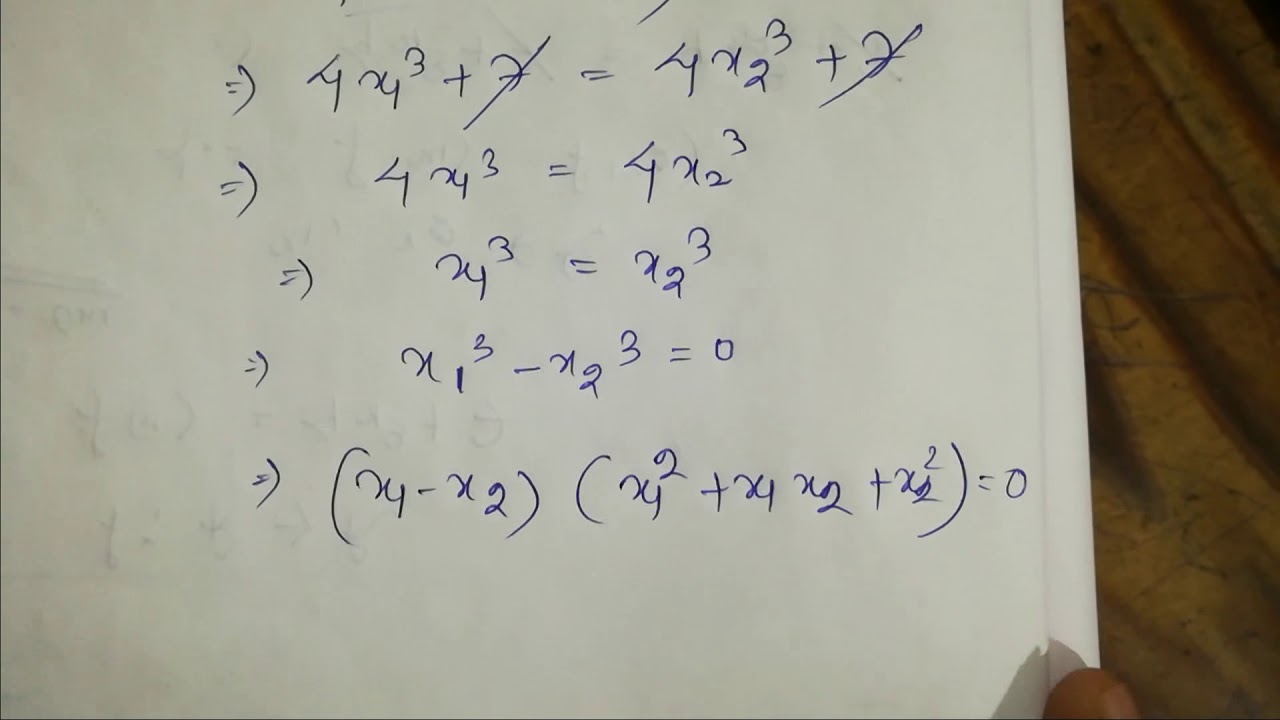 ⇒ 4x₁³ + 7 = 4x₂³ + 7
⇒ 4x₁³ = 4x₂³
⇒ x₁³ = x₂³
⇒ x₁³ - x₂³ = 0
⇒ (x₁ - x₂) (x₁² + x₁ x₂ + x₂²) = 0